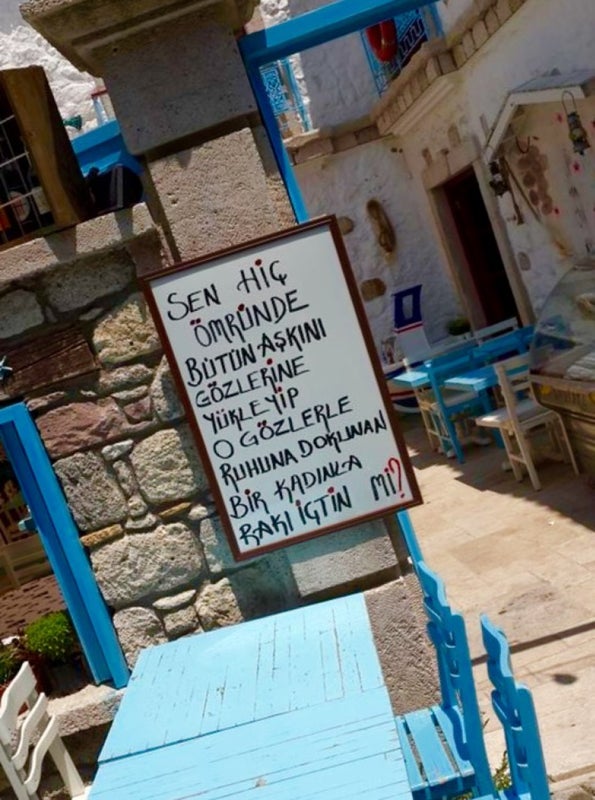 SEN HİÇ
ÖMRÜNDE
BÜTÜN AŞKINI
GÖZLERİNE
YÜKLEYİP
O GÖZLERLE
RUHUNA DOKUNAN
BİR KADINLA
RAKI İÇTİN Mİ?